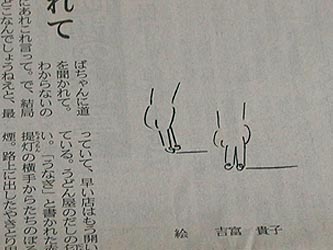 れて
にあれこれ言って。で、結局
どこなんでしょうねえと、最
ばちゃんに道
を聞かれて。
わからないの
っていて、早い店はもう開い
ている。うどん屋のだしの
い。「うなぎ」と書かれた赤
提灯の横手からたちのぼる
煙。路上に出したやきとり
絵 吉富 貴子